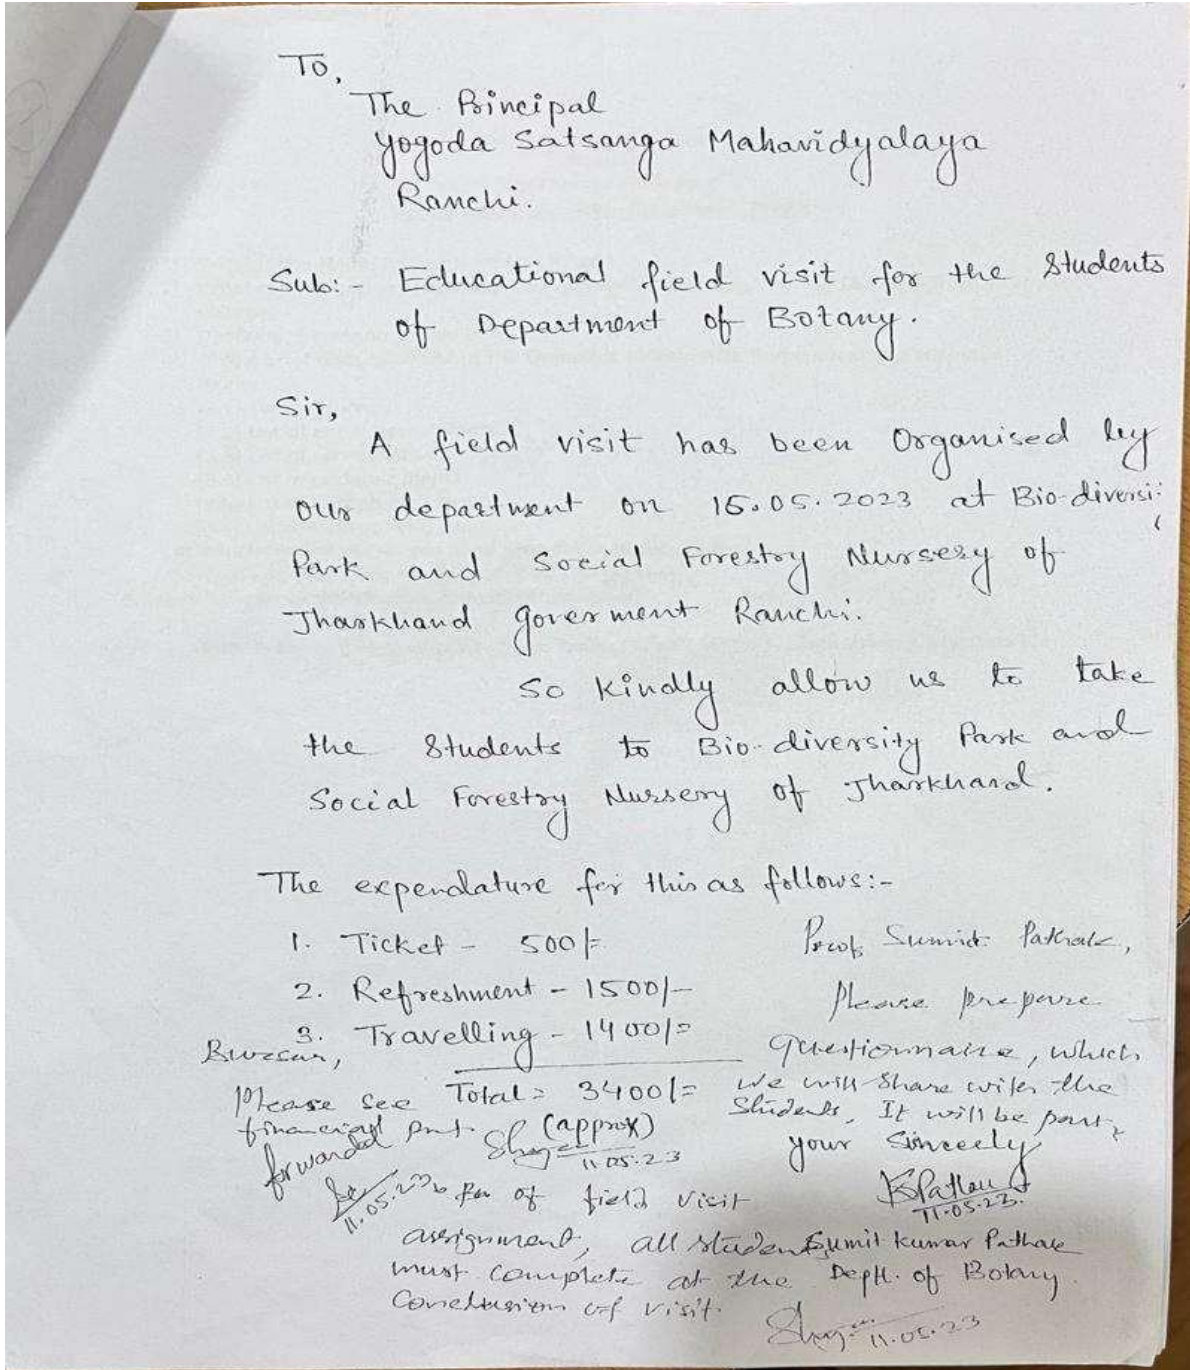 To,
The Principal
Yogoda Satsanga Mahavidyalaya
Ranchi.
Sub:- Educational field visit for the Students
of Department of Botany.
Sir,
A field visit has been Organised by
our department on 15.05.2023 at Bio-diversi
Park and Social Forestry Nursery of
Jharkhand goverment Ranchi.
So kindly allow us to take
the Students to Bio-diversity Park and
Social Forestry Nursery of Jharkhand.
The expendature for this as follows:-
1. Ticket - 500/=
2. Refreshment - 1500/-
3. Travelling - 1400/=
Total = 3400/=
(approx)
11.05.23
Bursar,
Please see
financial part.
forwarded
11.05.23
Prof Sumit Pathak,
Please prepare
questionnaire, which
we will share with the
Students. It will be part
of field visit
assignment, all students
must complete at the
Conclusion of visit.
11.05.23
your Sinceely
11.05.23.
Sumit Kumar Pathak
Deptt. of Botany